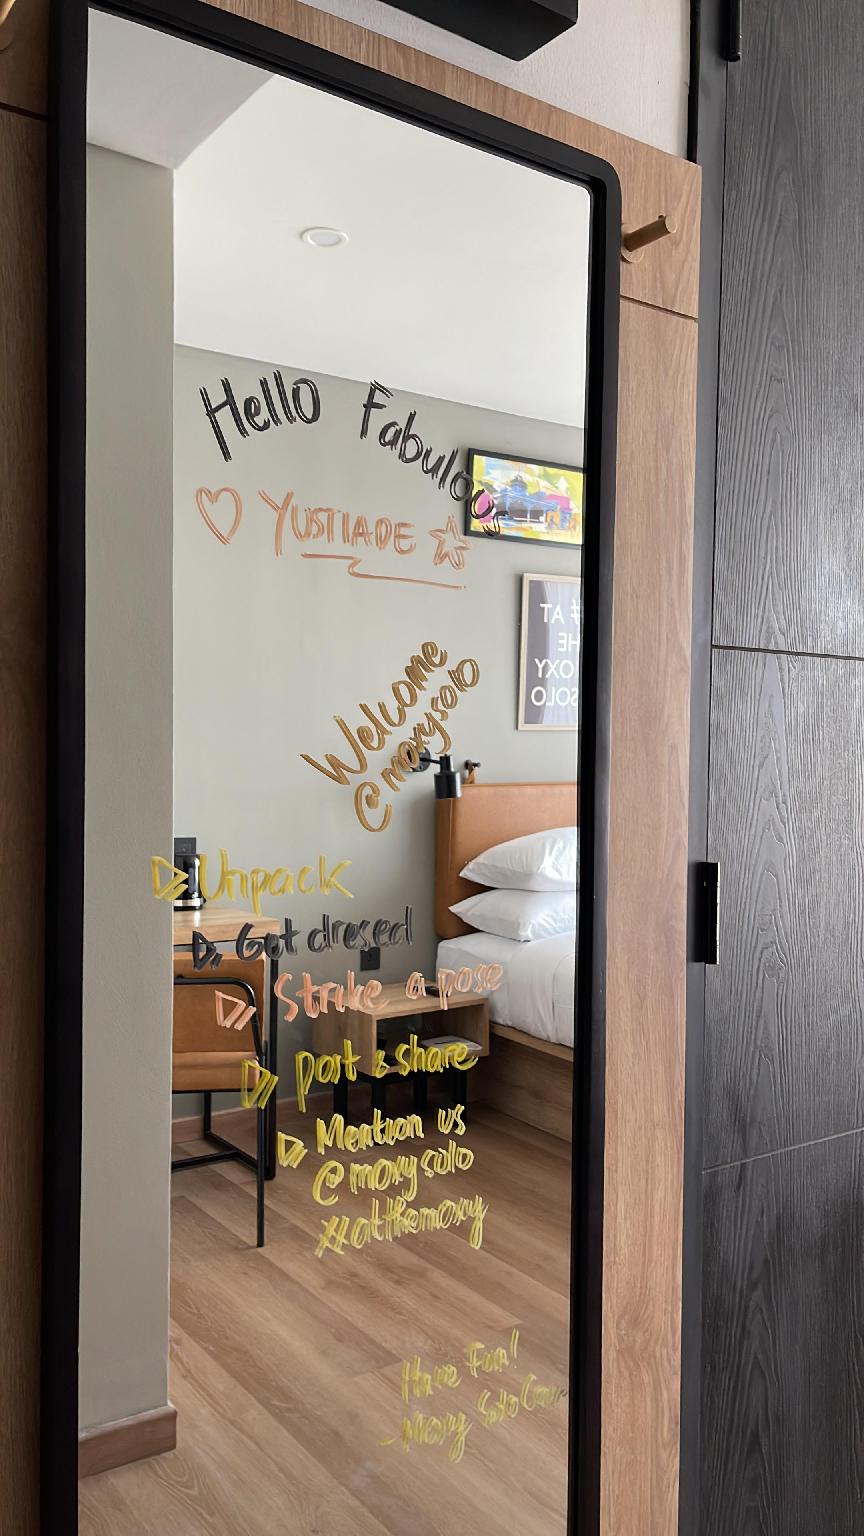 Hello Fabuloos
YUSTIADE
Welcome
@moxysolo
Unpack
Get dresed
Strike a pose
post & share
Mention us
@moxysolo
#atthemoxy
Have Fun!
- Moxy Solo
# AT
THE
OXY
SOLO